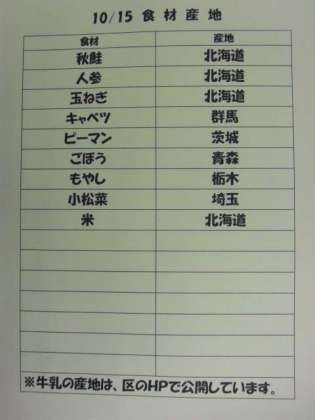 10/15 食材産地
食材 産地
秋鮭 北海道
人参 北海道
玉ねぎ 北海道
キャベツ 群馬
ピーマン 茨城
ごぼう 青森
もやし 栃木
小松菜 埼玉
米 北海道
※牛乳の産地は、区のHPで公開しています。